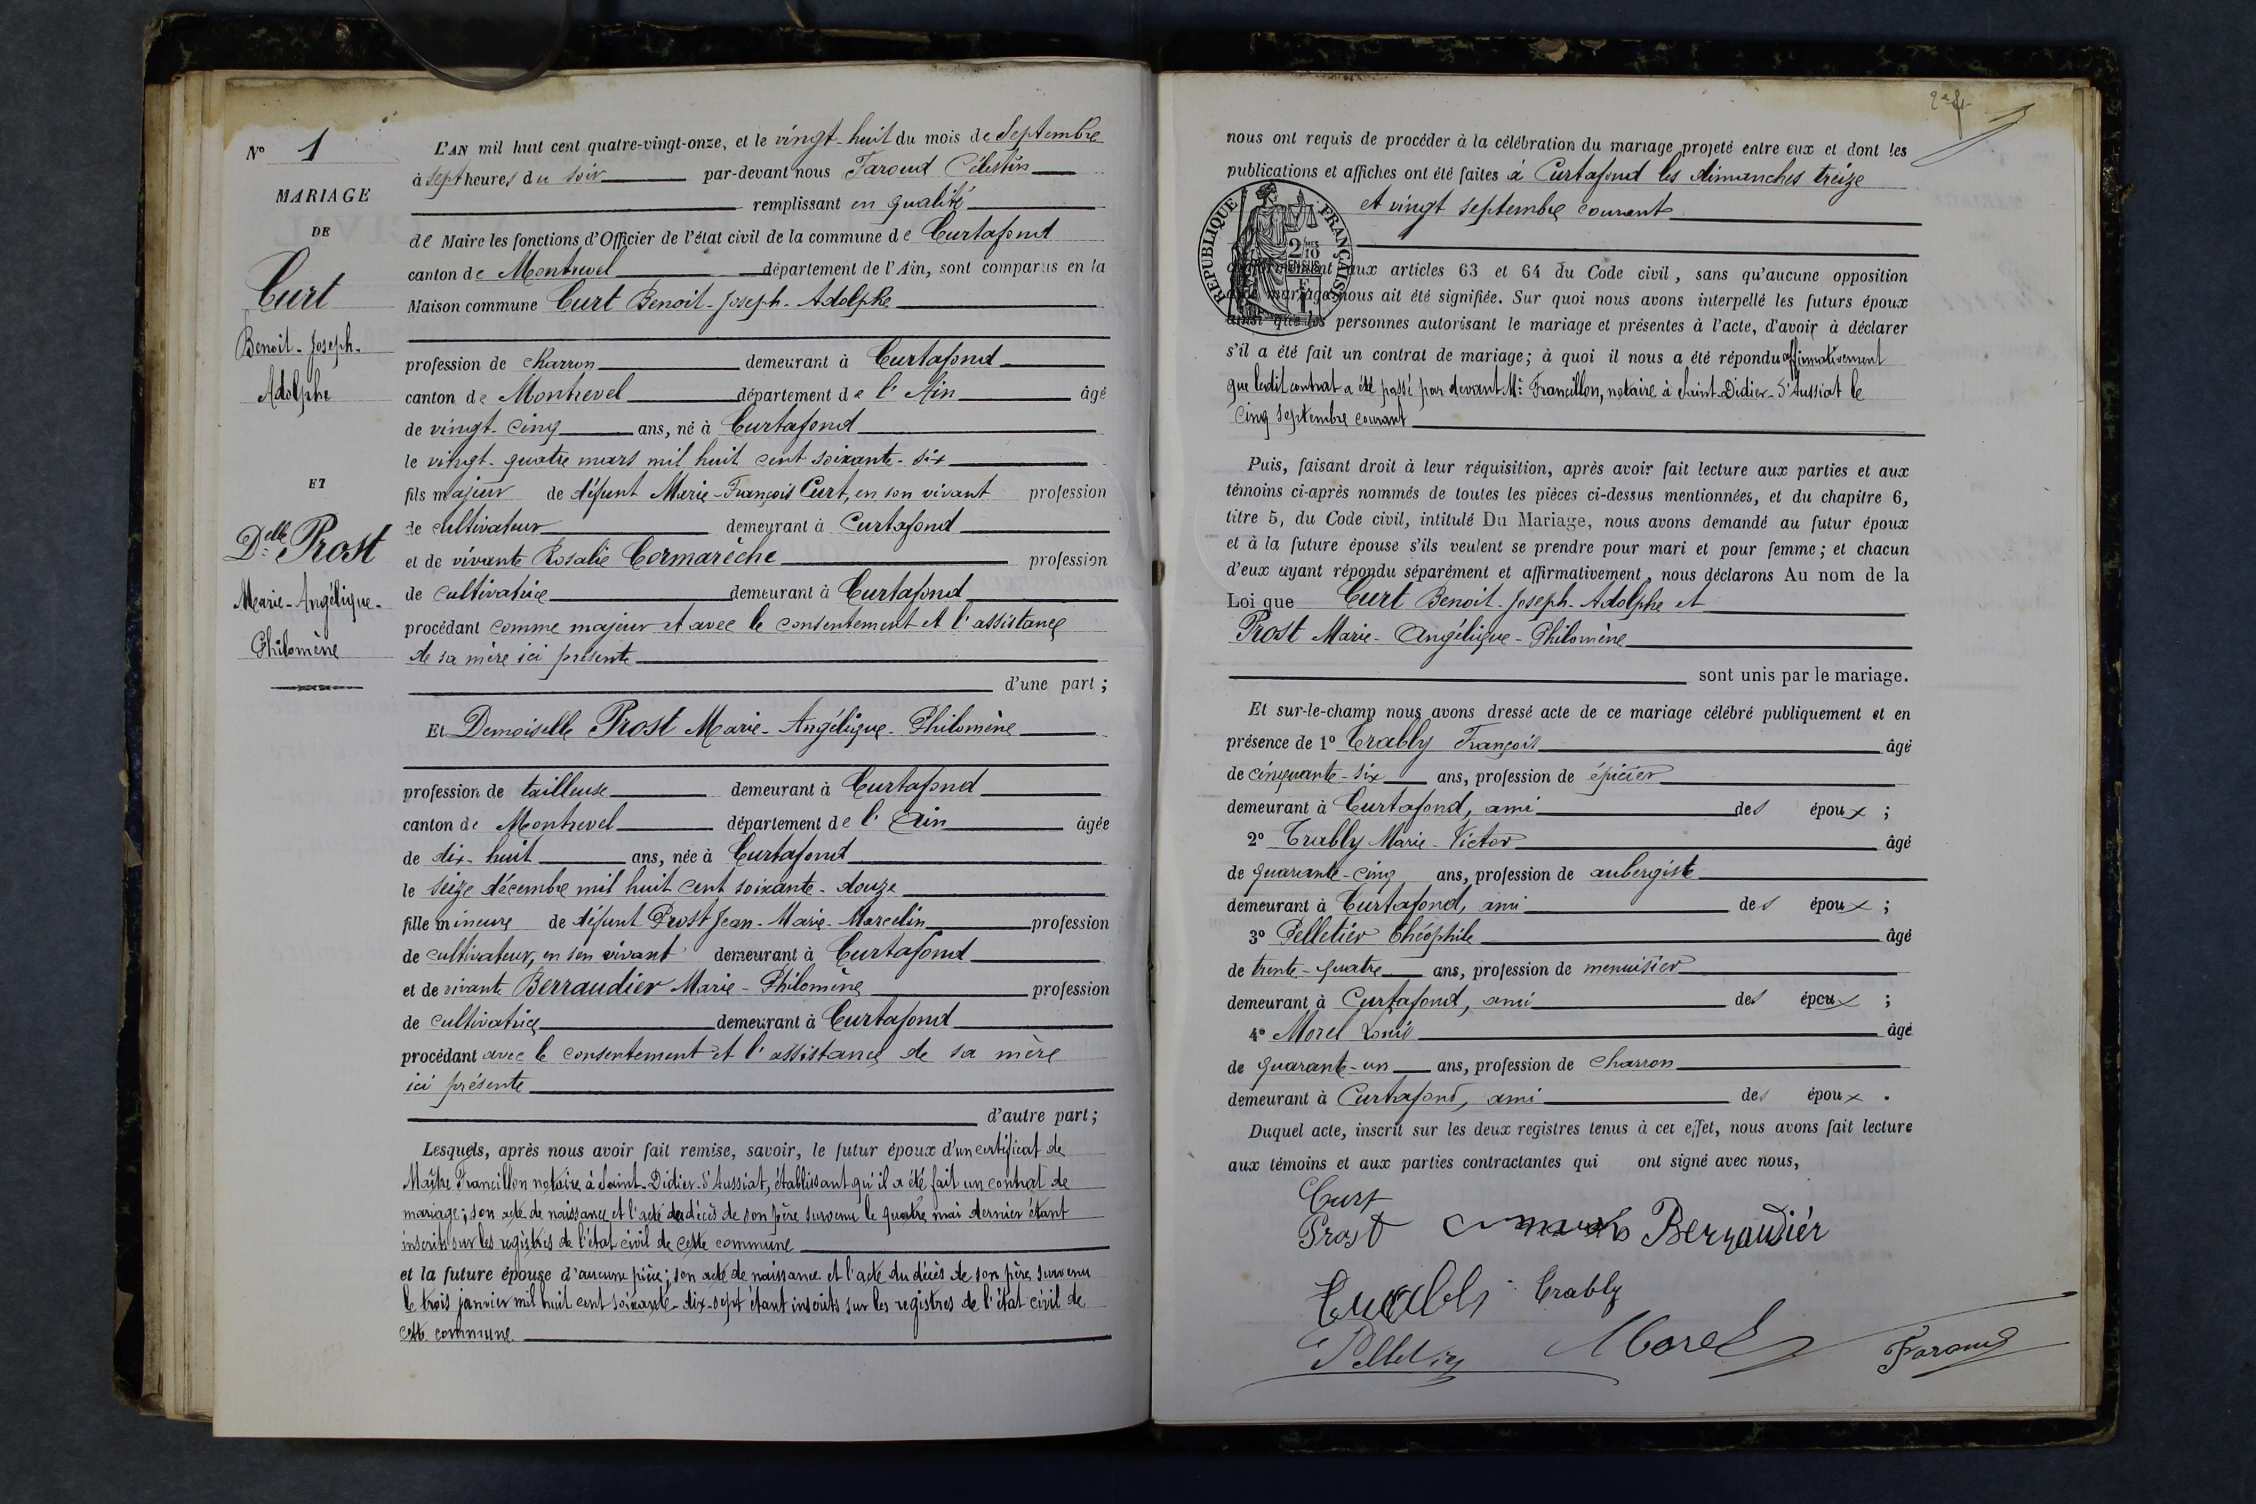 N° 1
MARIAGE
DE
Curt
Benoit-Joseph-
Adolphe
ET
Delle Prost
Marie-Angélique-
Philomène
L'AN mil huit cent quatre-vingt-onze, et le vingt-huit du mois de Septembre
à sept heures du soir par-devant nous Faroud Célestin
remplissant en qualité
de Maire les fonctions d'Officier de l'état civil de la commune de Curtafond
canton de Montrevel département de l'Ain, sont comparus en la
Maison commune Curt Benoit-Joseph-Adolphe
profession de charron demeurant à Curtafond
canton de Montrevel département de l'Ain âgé
de vingt-cinq ans, né à Curtafond
le vingt-quatre mars mil huit cent soixante-six
fils majeur de défunt Marie-François Curt, en son vivant profession
de cultivateur demeurant à Curtafond
et de vivante Rosalie Cormarèche profession
de cultivatrice demeurant à Curtafond
procédant comme majeur et avec le consentement et l'assistance
de sa mère ici présente
d'une part ;
Et Demoiselle Prost Marie-Angélique-Philomène
profession de tailleuse demeurant à Curtafond
canton de Montrevel département de l'Ain âgée
de dix-huit ans, née à Curtafond
le seize décembre mil huit cent soixante-douze
fille mineure de défunt Prost Jean-Marie-Marcelin profession
de cultivateur, en son vivant demeurant à Curtafond
et de vivante Berraudier Marie-Philomène profession
de cultivatrice demeurant à Curtafond
procédant avec le consentement et l'assistance de sa mère
ici présente
d'autre part ;
Lesquels, après nous avoir fait remise, savoir, le futur époux d'un certificat de
Maître Francillon notaire à Saint-Didier-d'Aussiat, établissant qu'il a été fait un contrat de
mariage ; son acte de naissance et l'acte de décès de son père survenu le quatre mai dernier étant
inscrits sur les registres de l'état civil de cette commune
et la future épouse d'aucune pièce ; son acte de naissance et l'acte du décès de son père survenu
le trois janvier mil huit cent soixante-dix-sept étant inscrits sur les registres de l'état civil de
cette commune
nous ont requis de procéder à la célébration du mariage projeté entre eux et dont les
publications et affiches ont été faites à Curtafond les dimanches treize
et vingt septembre courant
RÉPUBLIQUE FRANÇAISE
2/10
EN SUS
conformément aux articles 63 et 64 du Code civil, sans qu'aucune opposition
mariage nous ait été signifiée. Sur quoi nous avons interpellé les futurs époux
ainsi que les personnes autorisant le mariage et présentes à l'acte, d'avoir à déclarer
s'il a été fait un contrat de mariage ; à quoi il nous a été répondu affirmativement
que ledit contrat a été passé par devant Me Francillon, notaire à Saint-Didier-d'Aussiat le
cinq septembre courant
Puis, faisant droit à leur réquisition, après avoir fait lecture aux parties et aux
témoins ci-après nommés de toutes les pièces ci-dessus mentionnées, et du chapitre 6,
titre 5, du Code civil, intitulé Du Mariage, nous avons demandé au futur époux
et à la future épouse s'ils veulent se prendre pour mari et pour femme ; et chacun
d'eux ayant répondu séparément et affirmativement, nous déclarons Au nom de la
Loi que Curt Benoit-Joseph-Adolphe et
Prost Marie-Angélique-Philomène
sont unis par le mariage.
Et sur-le-champ nous avons dressé acte de ce mariage célébré publiquement et en
présence de 1° Trably François âgé
de cinquante-six ans, profession de épicier
demeurant à Curtafond, ami des époux ;
2° Trably Marie-Victor âgé
de quarante-cinq ans, profession de aubergiste
demeurant à Curtafond, ami des époux ;
3° Pelletier Théophile âgé
de trente-quatre ans, profession de menuisier
demeurant à Curtafond, ami des époux ;
4° Morel Louis âgé
de quarante-un ans, profession de charron
demeurant à Curtafond, ami des époux .
Duquel acte, inscrit sur les deux registres tenus à cet effet, nous avons fait lecture
aux témoins et aux parties contractantes qui ont signé avec nous,
Curt
Prost Berraudièr
Trably Trably
Pelletier Morel Faroud